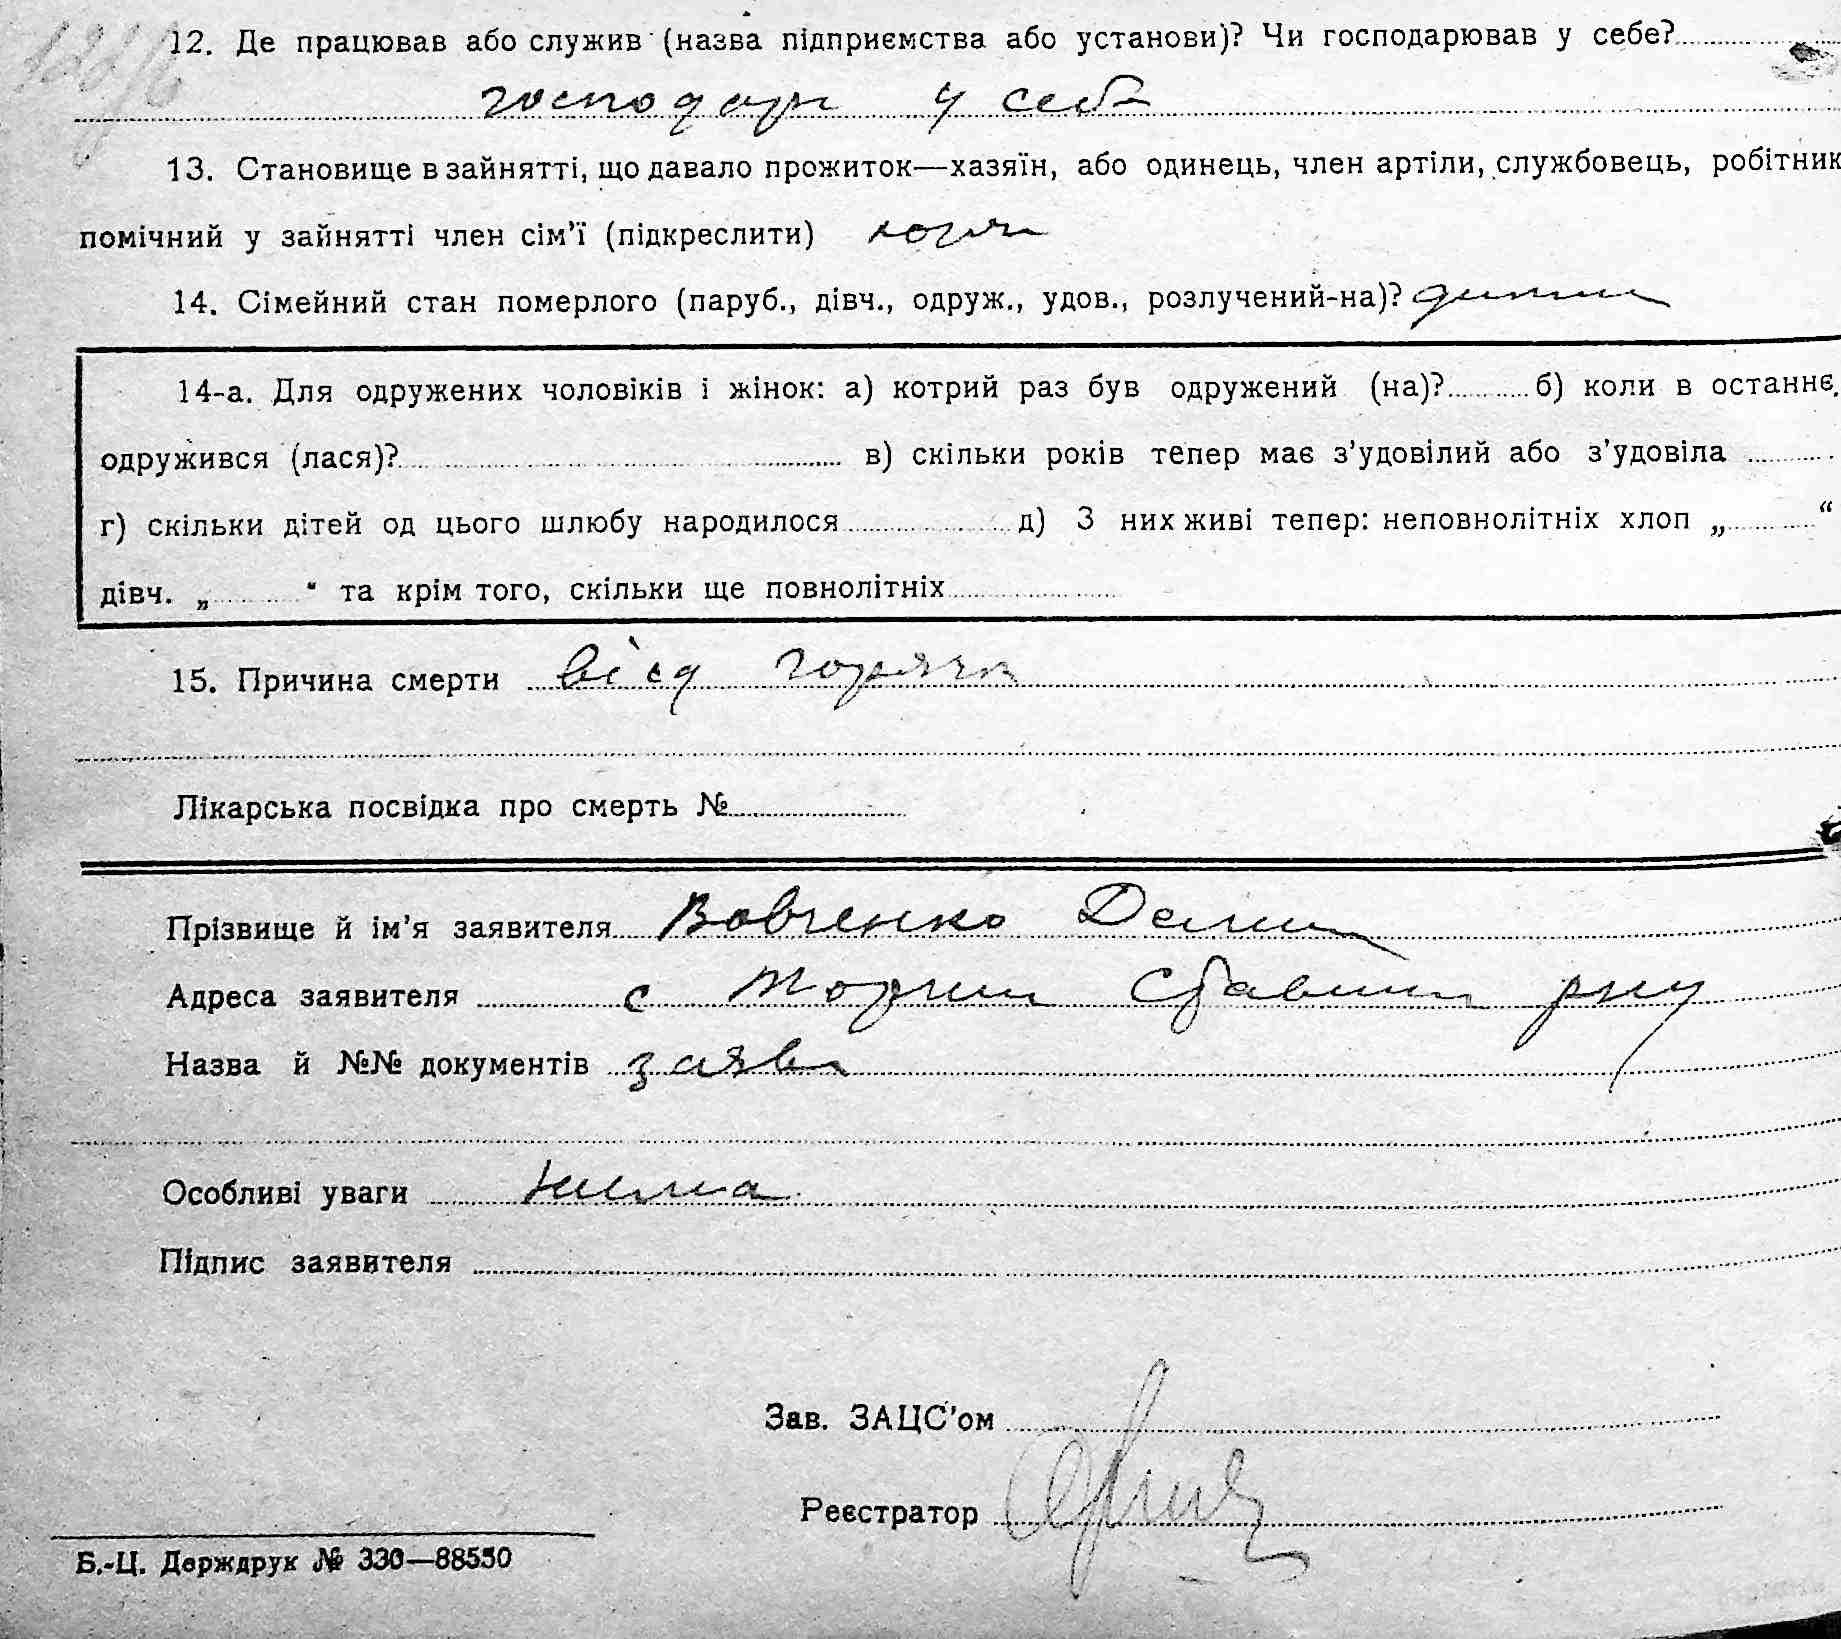 12. Де працював або служив (назва підприємства або установи)? Чи господарював у себе?
господар у себе
13. Становище в зайнятті, що давало прожиток—хазяїн, або одинець, член артіли, службовець, робітник
помічний у зайнятті член сім'ї (підкреслити)
14. Сімейний стан померлого (паруб., дівч., одруж., удов., розлучений-на)? дитина
14-а. Для одружених чоловіків і жінок: а) котрий раз був одружений (на)? б) коли в останнє
одружився (лася)? в) скільки років тепер має з'удовілий або з'удовіла
г) скільки дітей од цього шлюбу народилося д) З них живі тепер: неповнолітніх хлоп „ “
дівч. „ “ та крім того, скільки ще повнолітніх
15. Причина смерти
Лікарська посвідка про смерть №
Прізвище й ім'я заявителя Вовченко
Адреса заявителя с Торчин Ставищ рну
Назва й №№ документів заява
Особливі уваги Нима
Підпис заявителя
Зав. ЗАЦС'ом
Реєстратор
Б.-Ц. Держдрук № 330—88550